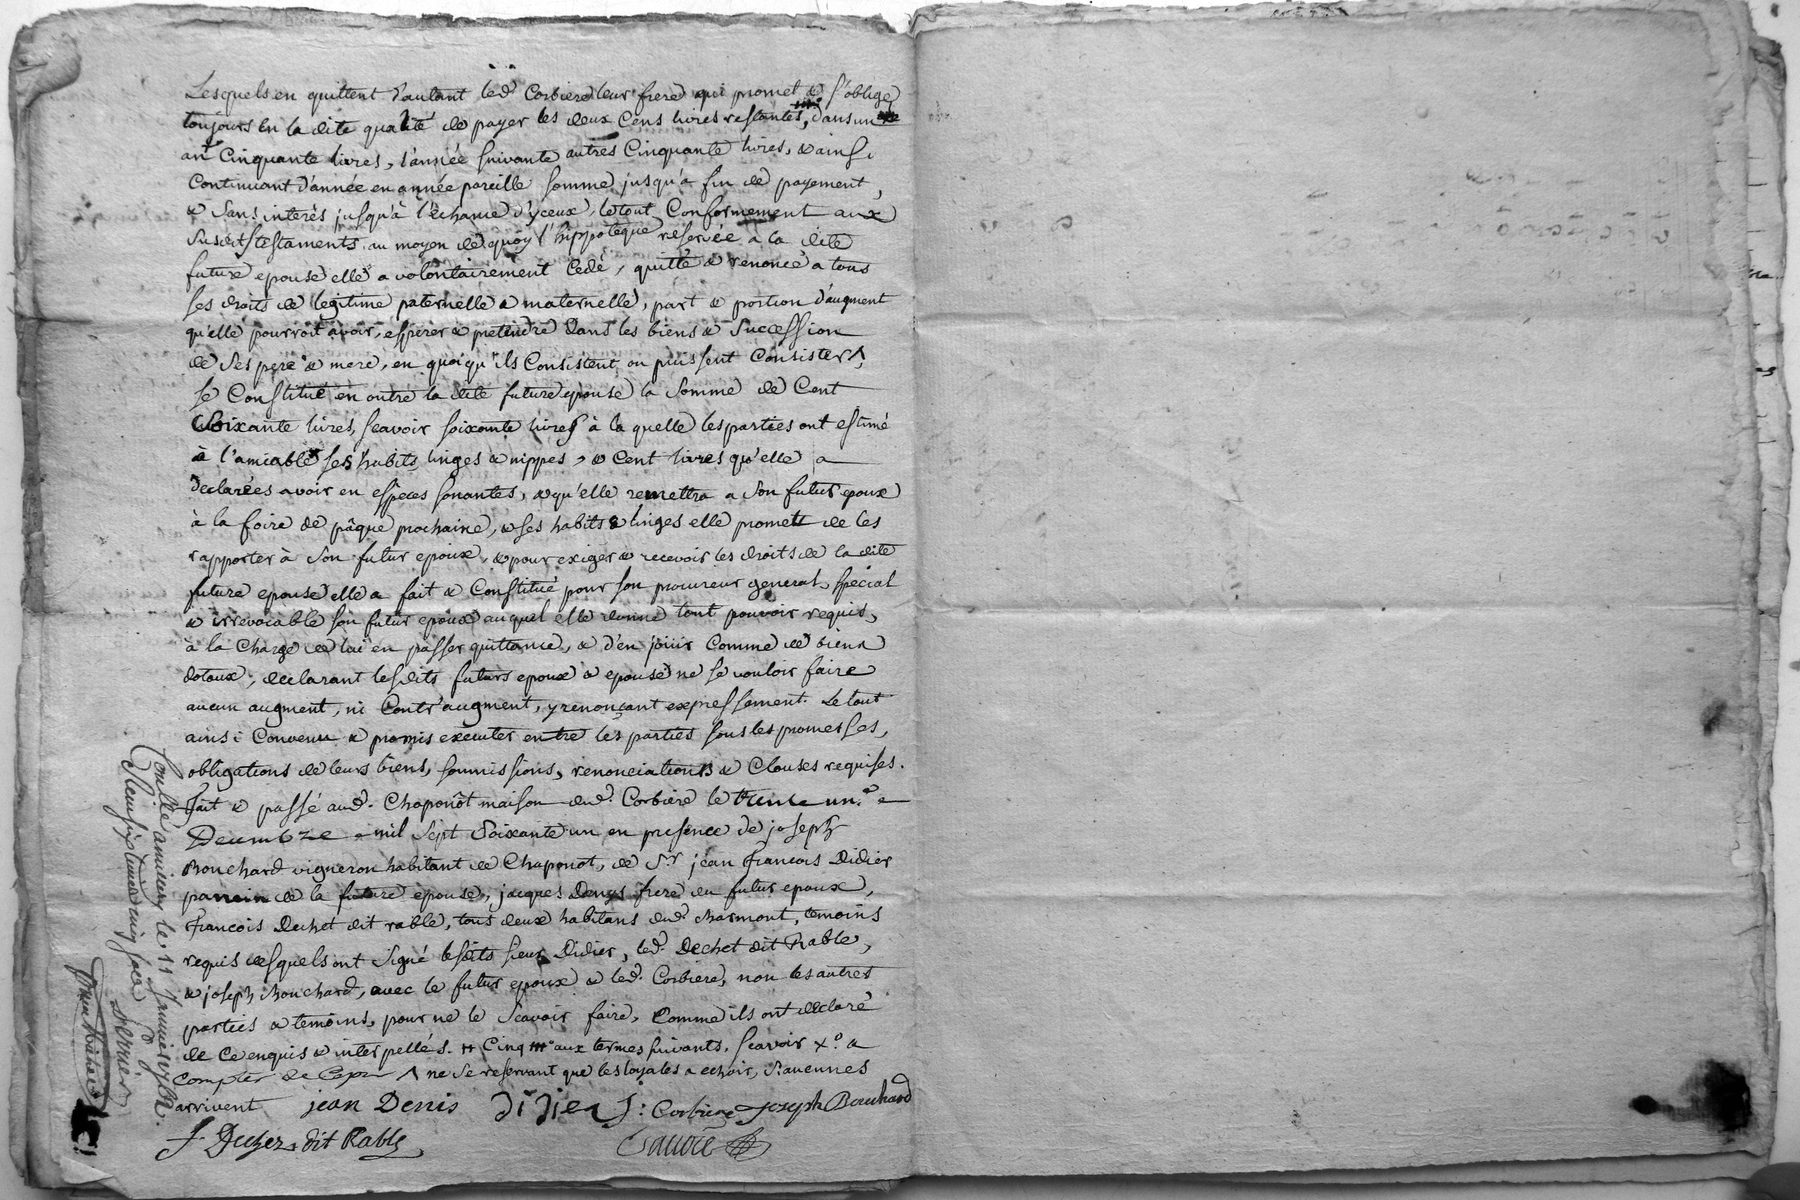 Lesquels en quittent d'autant led. Corbiere leur frere qui promet & s'oblige
toujours en la dite qualité de payer les deux Cens livres restantes, dans un
an Cinquante livres, l'année suivante autres Cinquante livres, & ainsi
Continuant d'année en année pareille somme jusqu'à fin de payement,
& sans interés jusqu'à l'échance d'yceux, le tout Conformement aux
susdits testaments, au moyen de quoy l'hippoteque reservée a la dite
future epouse elle a volontairement Cedé, quitté & renoncé a tous
ses droits de legitime paternelle & maternelle, part & portion d'augment
qu'elle pourroit avoir, esperer & pretendre dans les biens & succession
de ses pere & mere, en quoi qu'ils Consistent ou puissent Consister ^
se Constitue en outre la dite future epouse la somme de Cent
soixante livres, scavoir soixante livres à la quelle les parties ont estimé
à l'amiable ses habits, linges & nippes, & Cent livres qu'elle a
declarées avoir en especes sonantes, & qu'elle remettra a son futur epoux
à la foire de pâque prochaine, & ses habits & linges elle promet de les
rapporter à son futur epoux, & pour exiger & recevoir les droits de la dite
future epouse elle a fait & Constitué pour son procureur general, special
& irrevocable son futur epoux auquel elle donne tout pouvoir requis,
à la Charge de lui en passer quittance, & d'en jouir Comme de biens
dotaux, declarant lesdits futurs epoux & epouse ne se vouloir faire
aucun augment, ni Contr'augment, y renonçant expressement. Le tout
ainsi Convenu & promis executer entre les parties sous les promesses,
obligations de leurs biens, soumissions, renonciations & Clauses requises.
Fait & passé aud. Chaponôt maison dud. Corbiere le trente un.e
Decembre mil sept soixante un en presence de joseph
Bouchard vigneron habitant de Chaponot, de Sr jean François Didier
parrein de la future epouse, jacques Denys frere du futur epoux,
François Dechet dit rable, tous deux habitans dud. charmont, temoins
requis desquels ont signé lesdits sieur Didier, led. Dechet dit Rable,
& joseph Bouchard, avec le futur epoux & led. Corbiere, non les autres
parties & temoins, pour ne le scavoir faire, Comme ils ont declaré
de Ce enquis & interpellés. # Cinq aux termes suivants, scavoir x.o a
compter de ^ ne se reservant que les loyales a echoir, s'avennes
arrivent jean Denis didier J: Corbiere Joseph Bouchard
f. Dechez dit Rable
Con.llé a le 11 Janvier 1762.